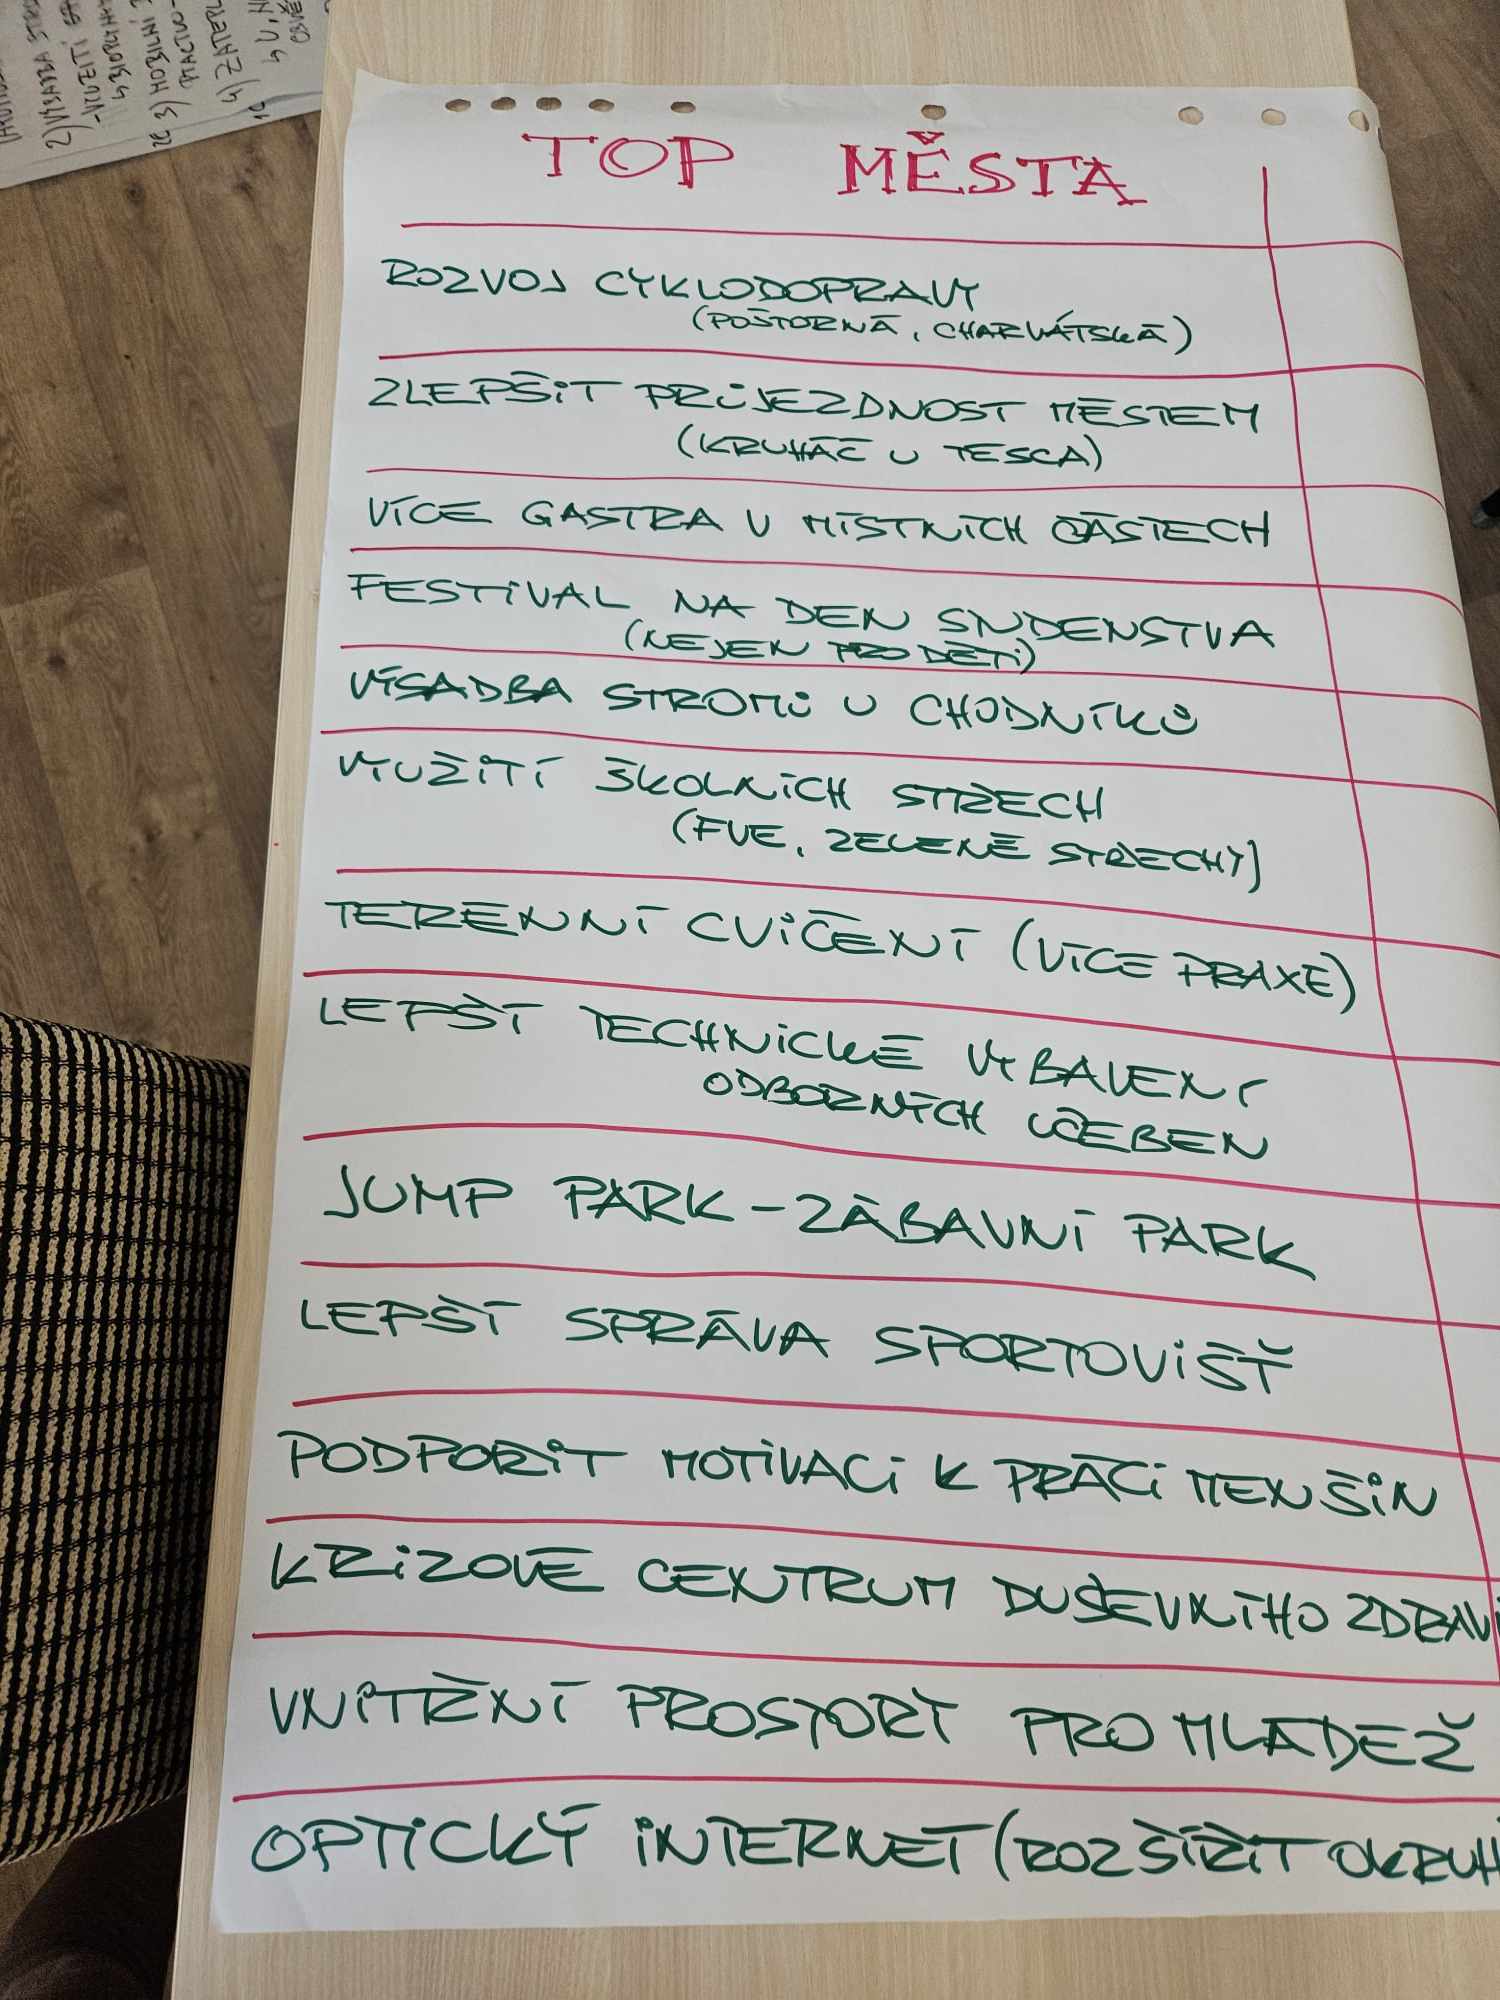 TOP MĚSTA
ROZVOJ CYKLODOPRAVY
(POŠTORNÁ, CHARVÁTSKÁ)
ZLEPŠIT PRŮJEZDNOST MĚSTEM
(KRUHÁČ U TESCA)
VÍCE GASTRA V MÍSTNÍCH ČÁSTECH
FESTIVAL NA DEN STUDENSTVA
(NEJEN PRO DĚTI)
VÝSADBA STROMŮ U CHODNÍKŮ
VYUŽITÍ ŠKOLNÍCH STŘECH
(FVE, ZELENÉ STŘECHY)
TERÉNNÍ CVIČENÍ (VÍCE PRAXE)
LEPŠÍ TECHNICKÉ VYBAVENÍ
ODBORNÝCH UČEBEN
JUMP PARK - ZÁBAVNÍ PARK
LEPŠÍ SPRÁVA SPORTOVIŠŤ
PODPOŘIT MOTIVACI K PRÁCI MENŠIN
KRIZOVÉ CENTRUM DUŠEVNÍHO ZDRAVÍ
VNITŘNÍ PROSTORY PRO MLÁDEŽ
OPTICKÝ INTERNET (ROZŠÍŘIT OKRUH
2) VÝSADBA
- VYUŽITÍ
3) MOBILNÍ
4) ZATEPL